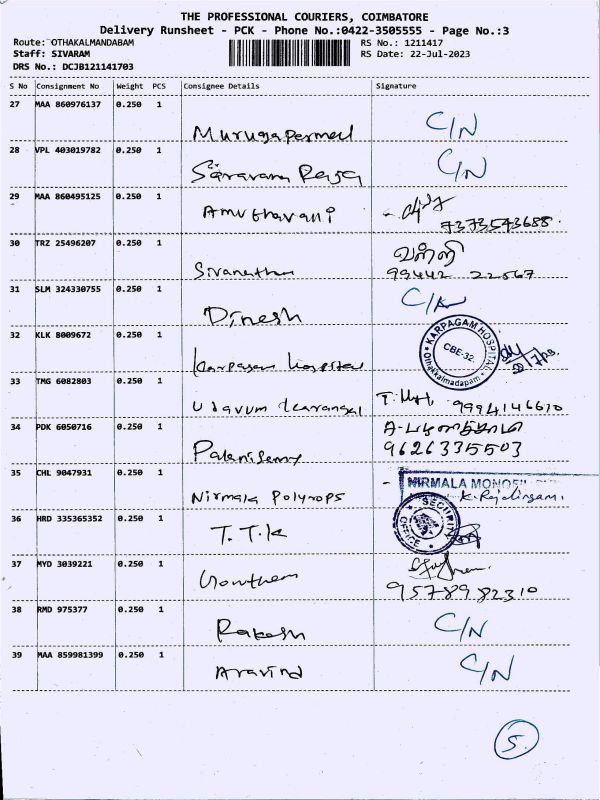 THE PROFESSIONAL COURIERS, COIMBATORE
Delivery Runsheet - PCK - Phone No.:0422-3505555 - Page No.:3
Route: OTHAKALMANDABAM RS No.: 1211417
Staff: SIVARAM RS Date: 22-Jul-2023
DRS No.: DCJB121141703
S No Consignment No Weight PCS Consignee Details Signature
27 MAA 860976137 0.250 1
Murugaperumal C/N
28 VPL 403019782 0.250 1
Saravana Raja C/N
29 MAA 860495125 0.250 1
Amuthavani
7373543688
30 TRZ 25496207 0.250 1 வள்ளி
Sivanathan 99442 22567
31 SLM 324330755 0.250 1 C/N
Dinesh
32 KLK 8009672 0.250 1 KARPAGAM HOSPITAL
CBE-32.
Othakkalmadapam
Karpagam hospital
33 TMG 6082803 0.250 1
Udavum Karangal 9994146610
34 PDK 6050716 0.250 1
Palanisamy 9626335503
35 CHL 9047931 0.250 1 NIRMALA
Nirmala Polyrops K. Rajalingam.
36 HRD 335365352 0.250 1 SECURITY
OFFICE
T.T.K
37 MYD 3039221 0.250 1
Gowtham 9578982310
38 RMD 975377 0.250 1
Rakesh C/N
39 MAA 859981399 0.250 1
Aravind C/N
5.